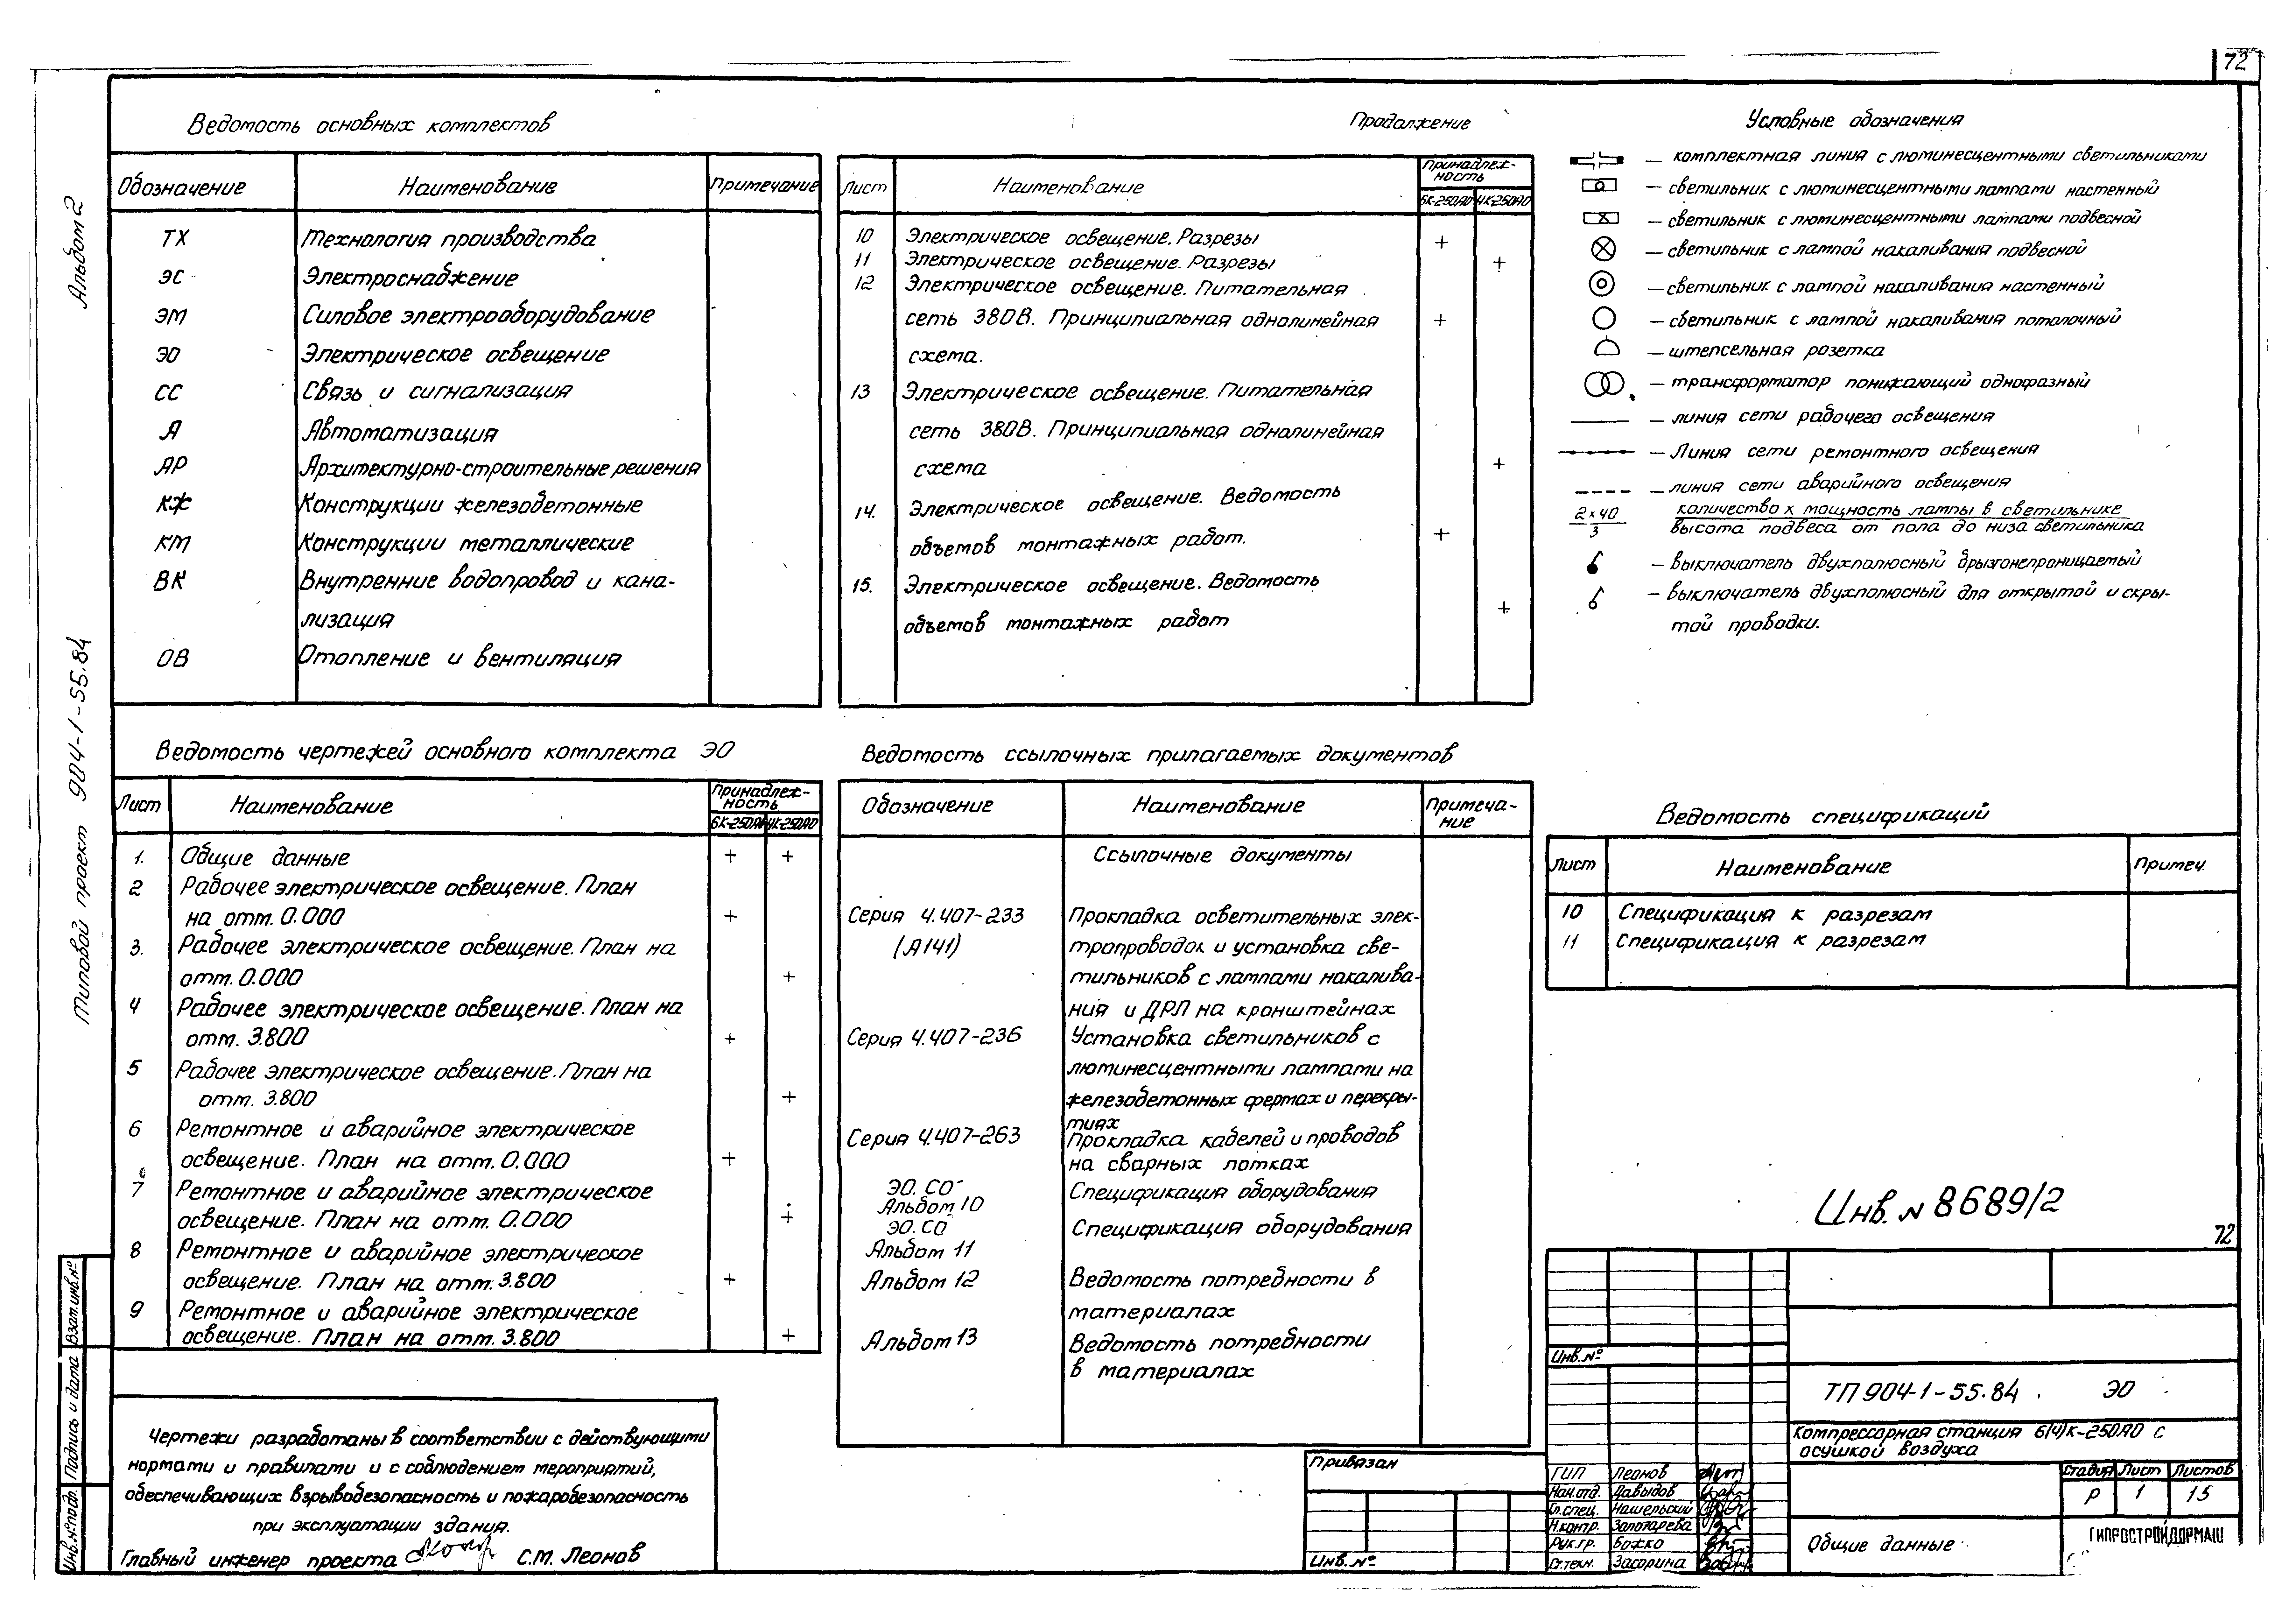 72
Альбом 2
Типовой проект 904-1-55.84
Ведомость основных комплектов
Обозначение Наименование Примечание
ТХ Технология производства
ЭС Электроснабжение
ЭМ Силовое электрооборудование
ЭО Электрическое освещение
СС Связь и сигнализация
А Автоматизация
АР Архитектурно-строительные решения
КЖ Конструкции железобетонные
КМ Конструкции металлические
ВК Внутренние водопровод и кана-
лизация
ОВ Отопление и вентиляция
Ведомость чертежей основного комплекта ЭО
Лист Наименование Принадлеж-
ность
6К-250АО 4К-250АО
1. Общие данные + +
2 Рабочее электрическое освещение. План
на отм. 0.000 +
3. Рабочее электрическое освещение. План на
отм. 0.000 +
4 Рабочее электрическое освещение. План на
отм. 3.800 +
5 Рабочее электрическое освещение. План на
отм. 3.800 +
6 Ремонтное и аварийное электрическое
освещение. План на отм. 0.000 +
7 Ремонтное и аварийное электрическое
освещение. План на отм. 0.000 +
8 Ремонтное и аварийное электрическое
освещение. План на отм. 3.800 +
9 Ремонтное и аварийное электрическое
освещение. План на отм. 3.800 +
Чертежи разработаны в соответствии с действующими
нормами и правилами и с соблюдением мероприятий,
обеспечивающих взрывобезопасность и пожаробезопасность
при эксплуатации здания.
Главный инженер проекта С.М. Леонов
Продалжение
Лист Наименование Принадлеж-
ность
6К-250АО 4К-250АО
10 Электрическое освещение. Разрезы +
11 Электрическое освещение. Разрезы +
12 Электрическое освещение. Питательная
сеть 380В. Принципиальная однолинейная +
схема.
13 Электрическое освещение. Питательная
сеть 380В. Принципиальная однолинейная
схема +
14. Электрическое освещение. Ведомость
объемов монтажных работ. +
15. Электрическое освещение. Ведомость
объемов монтажных работ +
Ведомость ссылочных прилагаемых документов
Обозначение Наименование Примеча-
ние
Ссылочные документы
Серия 4.407-233 Прокладка осветительных элек-
(А141) тропроводок и установка све-
тильников с лампами накалива-
ния и ДРЛ на кронштейнах
Серия 4.407-236 Установка светильников с
люминесцентными лампами на
железобетонных фермах и перекры-
тиях
Серия 4.407-263 Прокладка кабелей и проводов
на сварных лотках
ЭО. СО Спецификация оборудования
Альбом 10
ЭО. СО Спецификация оборудования
Альбом 11
Альбом 12 Ведомость потребности в
материалах
Альбом 13 Ведомость потребности
в материалах
Условные обозначения
— комплектная линия с люминесцентными светильниками
— светильник с люминесцентными лампами настенный
— светильник с люминесцентными лампами подвесной
— светильник с лампой накаливания подвесной
— светильник с лампой накаливания настенный
— светильник с лампой накаливания потолочный
— штепсельная розетка
— трансформатор понижающий однофазный
— линия сети рабочего освещения
— Линия сети ремонтного освещения
— линия сети аварийного освещения
2×40 количество х мощность лампы в светильнике
3 высота подвеса от пола до низа светильника
— выключатель двухполюсный брызгонепроницаемый
— выключатель двухполюсный для открытой и скры-
той проводки.
Ведомость спецификаций
Лист Наименование Примеч.
10 Спецификация к разрезам
11 Спецификация к разрезам
Инв. № 8689/2
72
Инв. №
ТП 904-1-55.84 ЭО
Компрессорная станция 6(4)К-250АО с
осушкой воздуха
Стадия Лист Листов
Р 1 15
Общие данные
ГИПРОСТРОЙДОРМАШ
ГИП Леонов
Нач.отд. Давыдов
Гл.спец. Нашельский
Н.контр. Золотарева
Рук.гр. Божко
Ст.техн. Засорина
Привязан
Инв. №
Взам.инв.№
Подпись и дата
Инв.№подл.